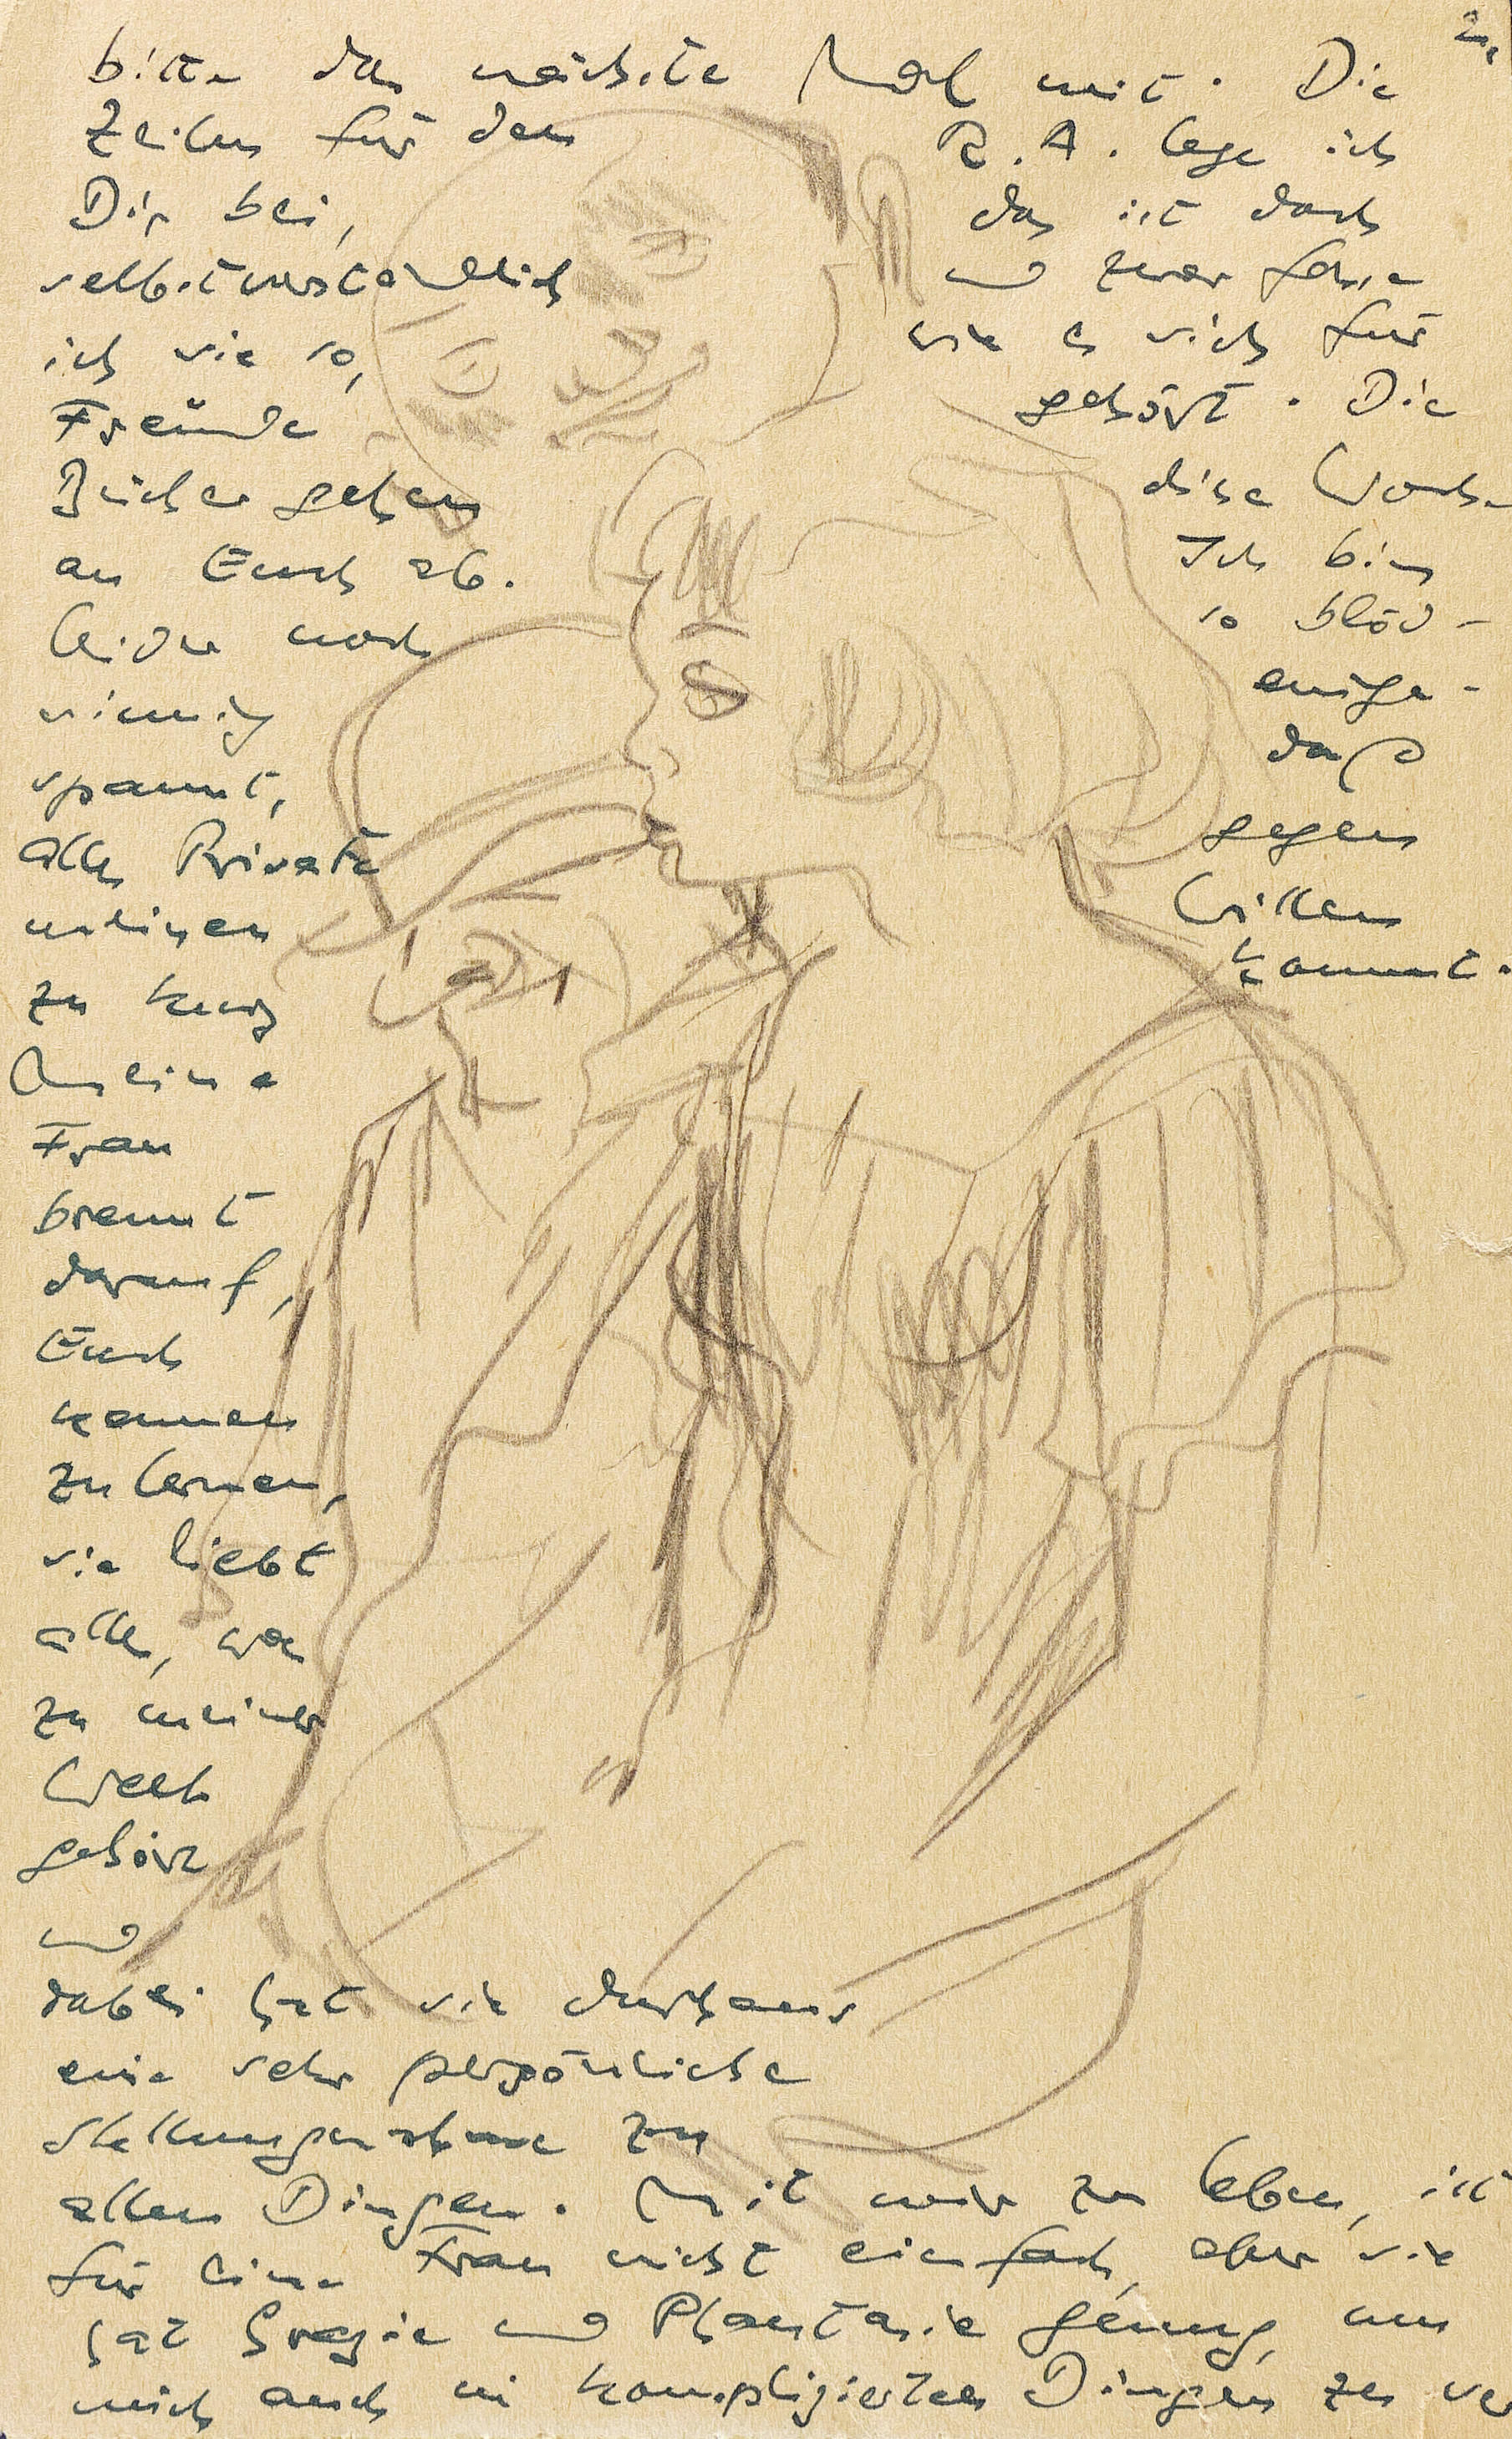 2.
bitte das nächste Mal mit. Die
Zeilen für den R. A. lege ich
Dir bei, das ist doch
selbstverständlich und zwar fasse
ich sie so, wie es sich für
Freunde gehört. Die
Bücher gehen diese Woche
an Euch ab. Ich bin
leider noch so blöd-
sinnig einge-
spannt, daß
alles Private gegen
meinen Willen
zu kurz kommt.
Meine
Frau
brennt
darauf,
Euch
kennen
zu lernen,
sie liebt
alles, was
zu meiner
Welt
gehört
und
dabei hat sie durchaus
eine sehr persönliche
Stellungnahme zu
allen Dingen. Mit mir zu leben, ist
für eine Frau nicht einfach, aber sie
hat Grazie und Phantasie genug, um
mich auch in komplizierten Dingen zu ver